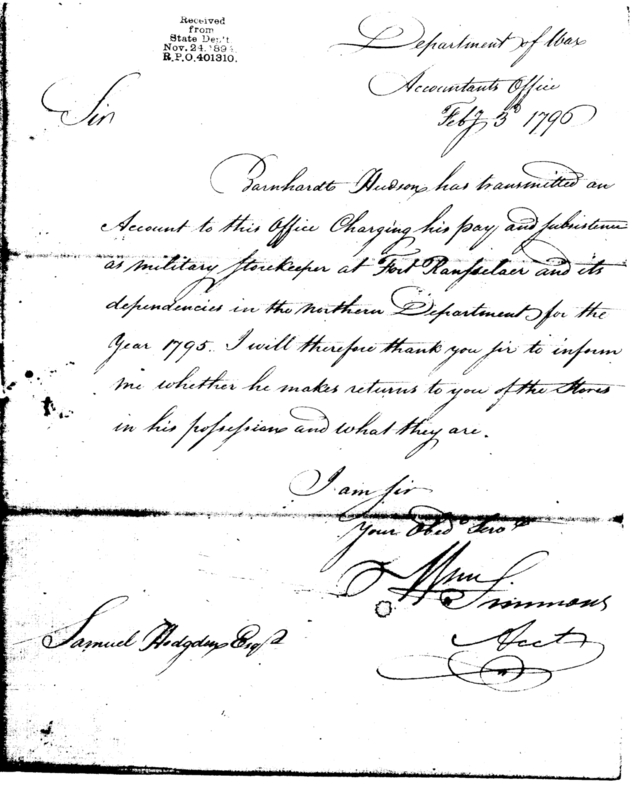 Received
from
State Dep't
Nov. 24. 1894.
R.P.O. 401310.
Department of War
Accountants Office
Feby 3d 1796
Sir
Barnhardt Hudson has transmitted an
Account to this Office Charging his pay and subsistence
as military storekeeper at Fort Ransselaer and its
dependencies in the northern Department for the
Year 1795. I will therefore thank you sir to inform
me whether he makes returns to you of the Stores
in his possession and what they are.
I am sir
Your Obed Servt
Wm Simmons
Acct
Samuel Hodgdon Esqr